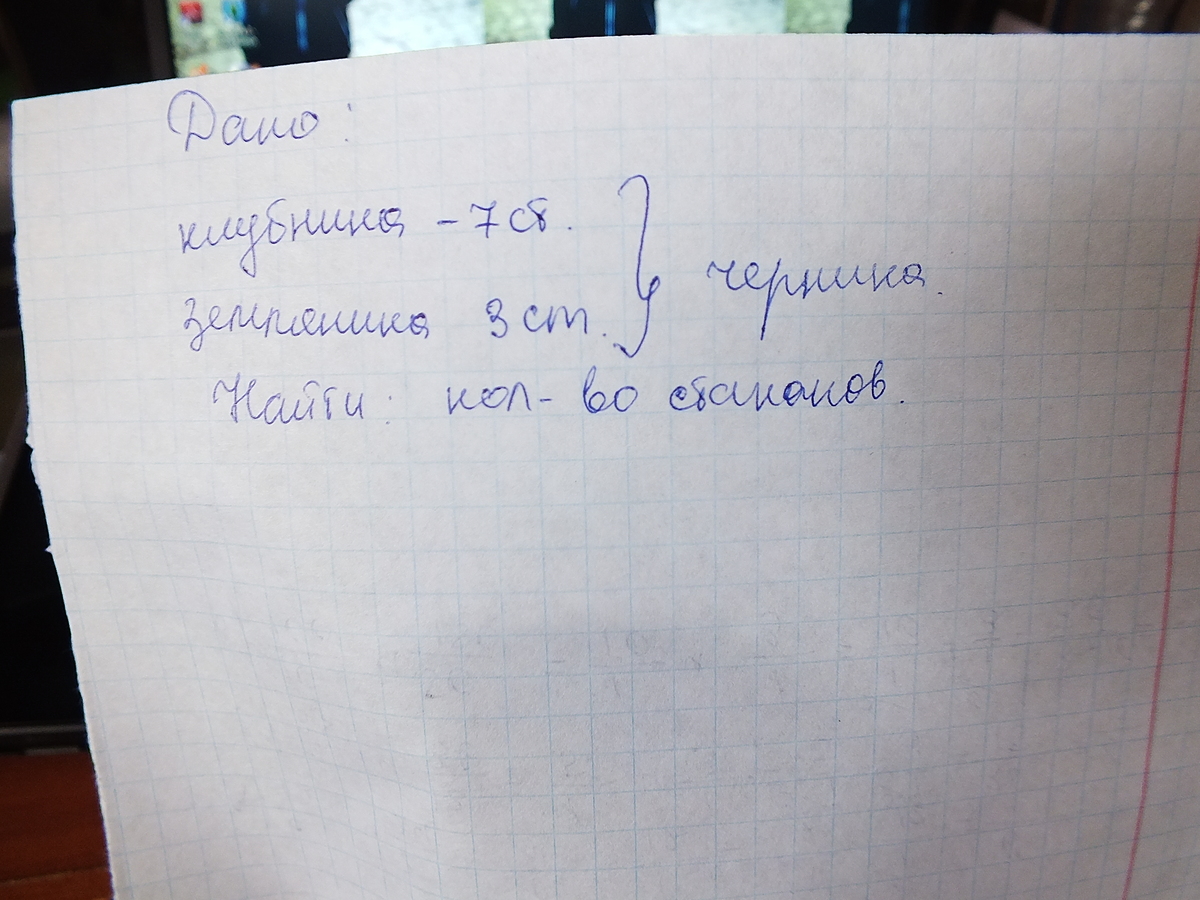 Дано:
клубника - 7 ст.
черника.
земляника 3 ст.
Найти: кол-во стаканов.